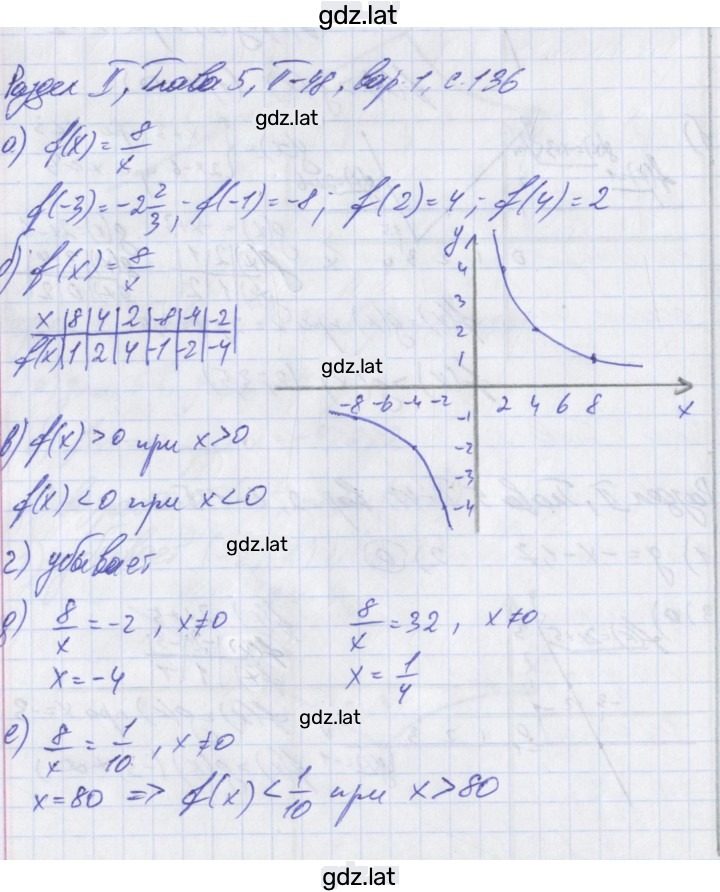 gdz.lat
Раздел II, Глава 5, П-48, вар. 1, с. 136
gdz.lat
а) f(x) = 8/x
f(-3) = -2 2/3; f(-1) = -8; f(2) = 4; f(4) = 2
б) f(x) = 8/x
x | 8 | 4 | 2 | -8 | -4 | -2
f(x) | 1 | 2 | 4 | -1 | -2 | -4
y
4
3
2
1
-8 -6 -4 -2 2 4 6 8 x
-1
-2
-3
-4
gdz.lat
в) f(x) > 0 при x > 0
f(x) < 0 при x < 0
gdz.lat
г) убывает
д) 8/x = -2, x ≠ 0 8/x = 32, x ≠ 0
x = -4 x = 1/4
gdz.lat
е) 8/x = 1/10, x ≠ 0
x = 80 => f(x) < 1/10 при x > 80
gdz.lat